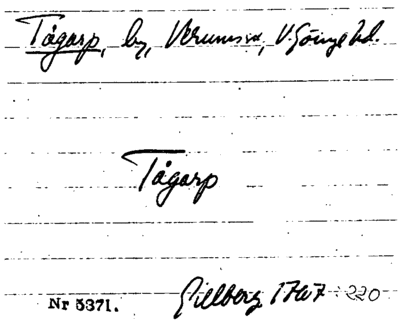 Tågarp, by, Verums sn, V. Göinge hd.
Tågarp
Gillberg 1767 : 220
Nr 5371.